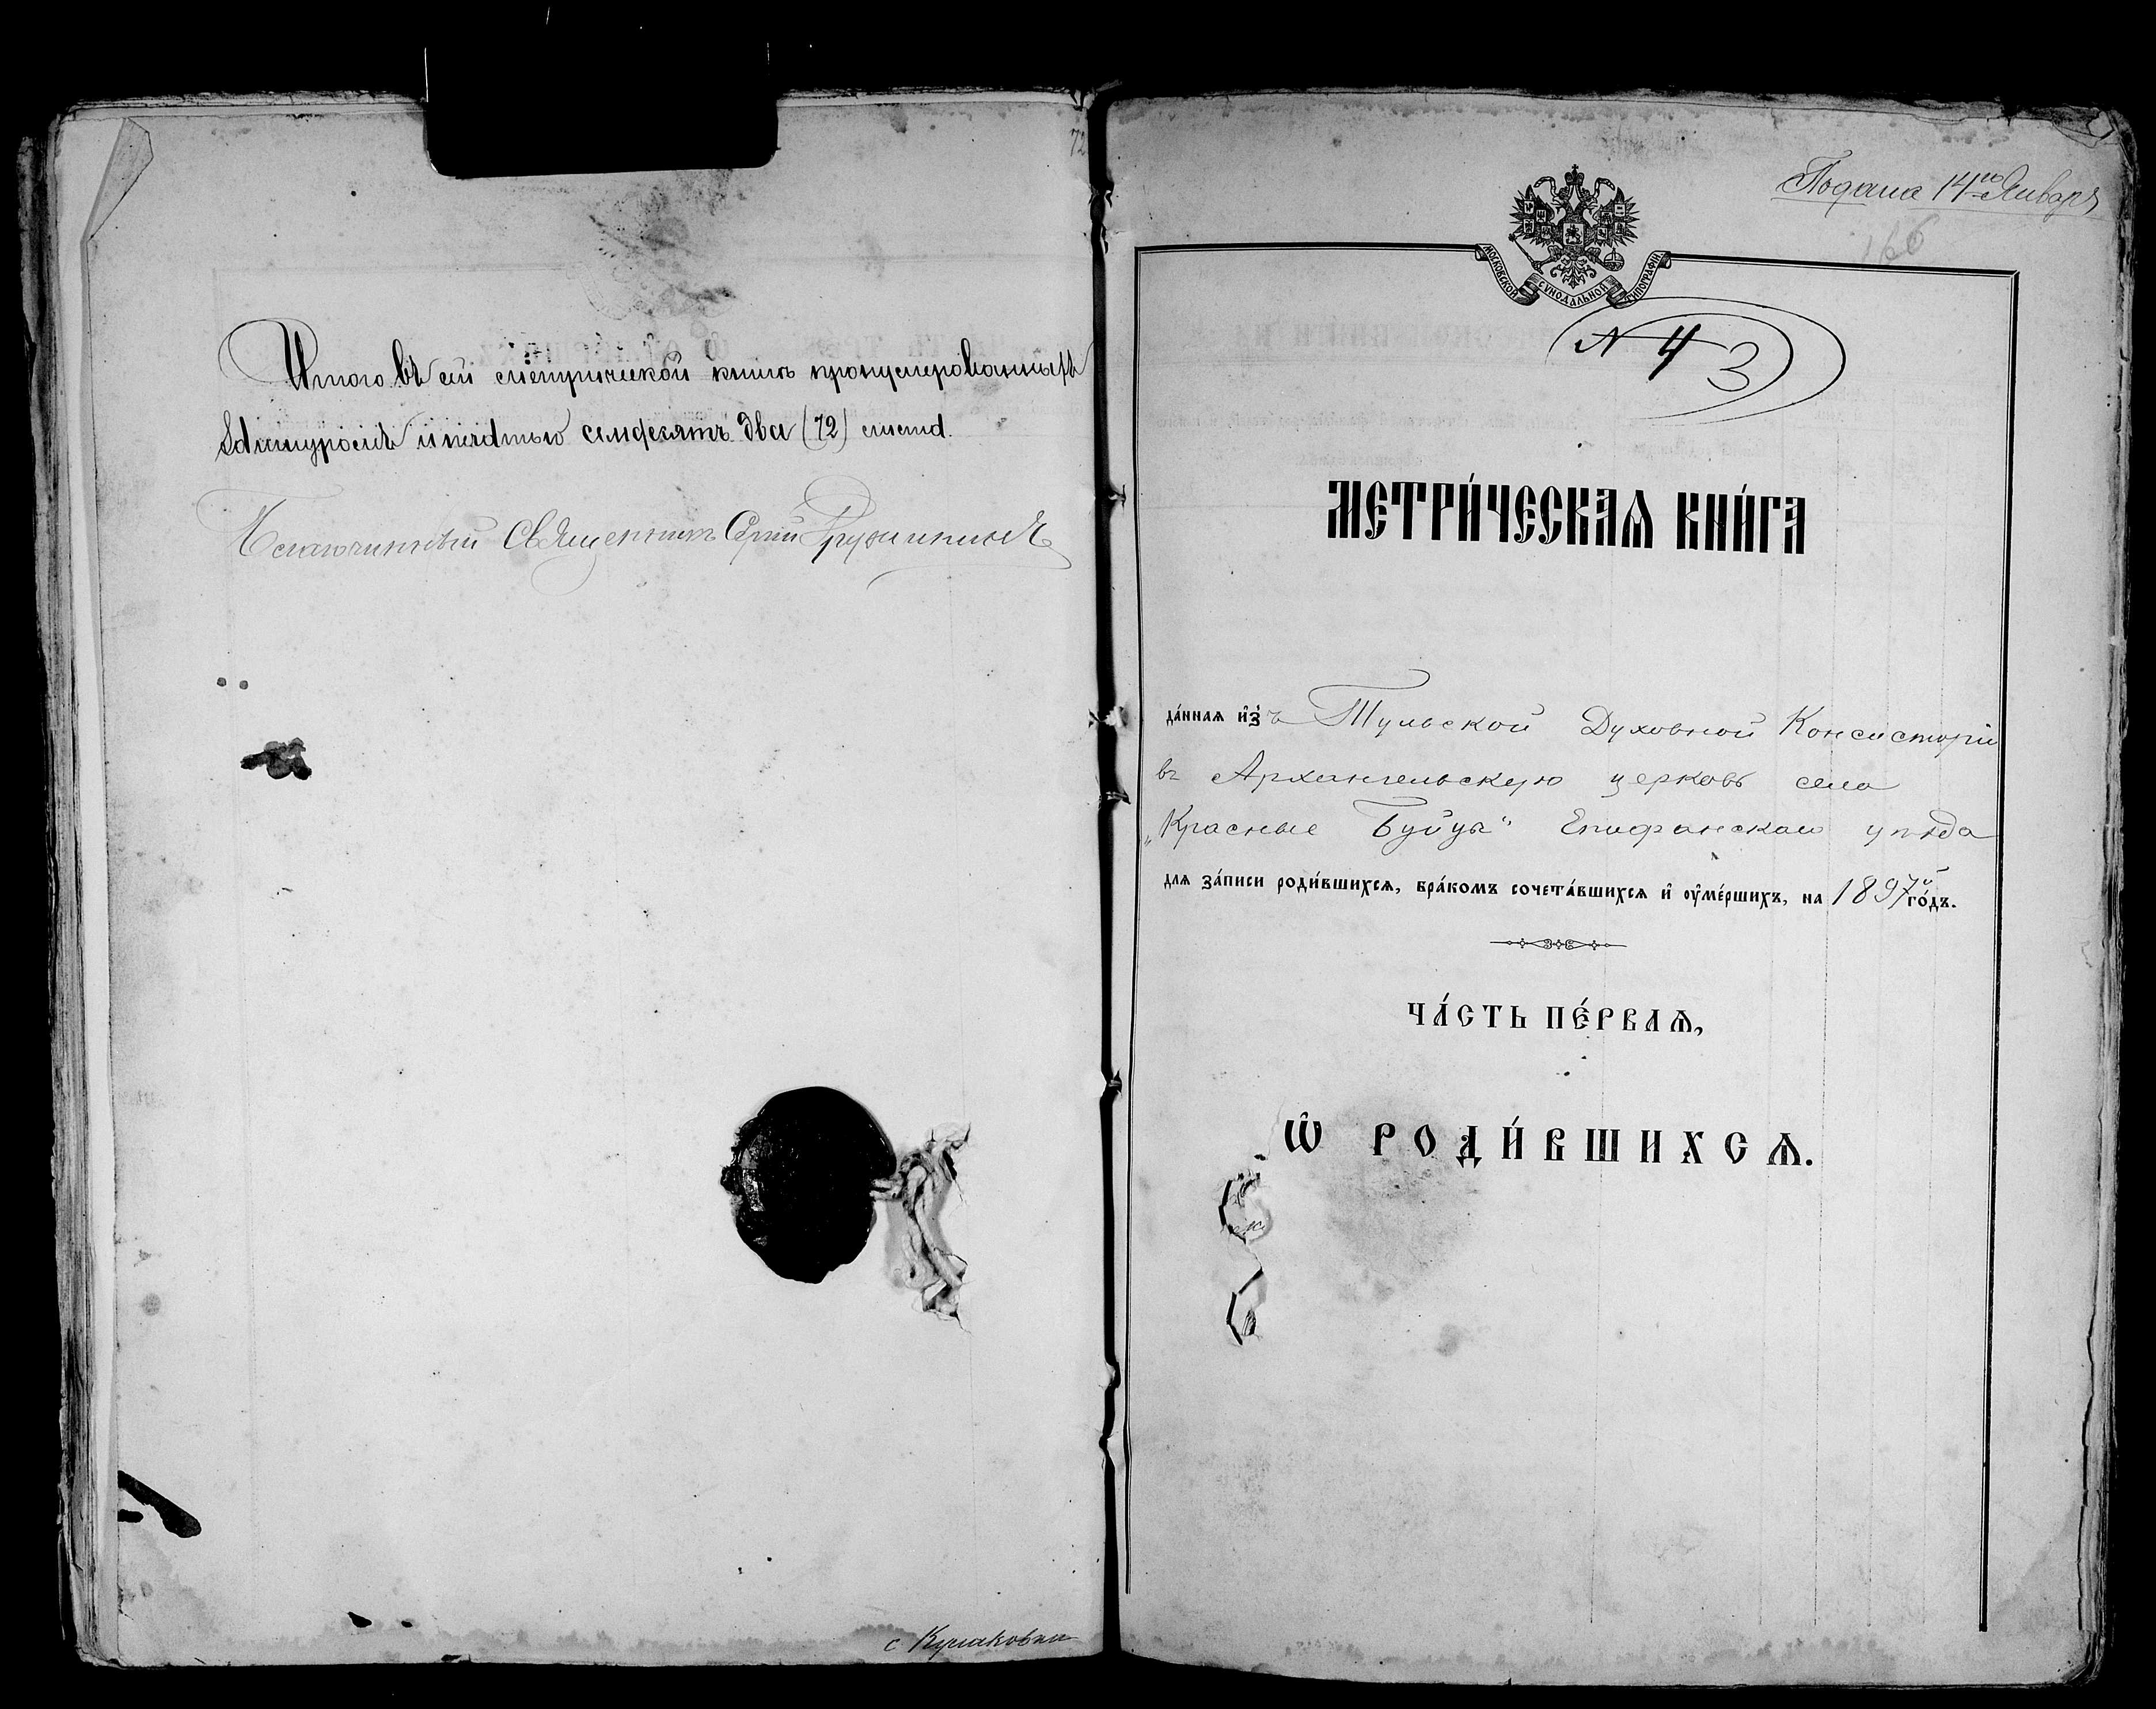 72
Итого въ сей метрической книгѣ пронумерованныхъ
за шнуромъ и печатью семдесятъ два (72) листа.
Благочинный Священникъ Сергій Дружининъ
с Кумаковки
Подана 14го Января
166
МОСКОВСКОЙ СѴНОДАЛЬНОЙ ТИПОГРАФІИ
N 4 3
МЕТРИ́ЧЕСКАѦ КНИ́ГА
да́ннаѧ и҆зъ Тульской Духовной Консисторіи
въ Архангельскую церковь села
„Красные Буйцы“ Епифанскаго уѣзда
длѧ за́писи роди́вшихсѧ, бра́комъ сочета́вшихсѧ и҆ ᲂу҆ме́ршихъ, на 1897й го́дъ.
ЧА́СТЬ ПЕ́РВАѦ,
Ѽ РОДИ́ВШИХСѦ.